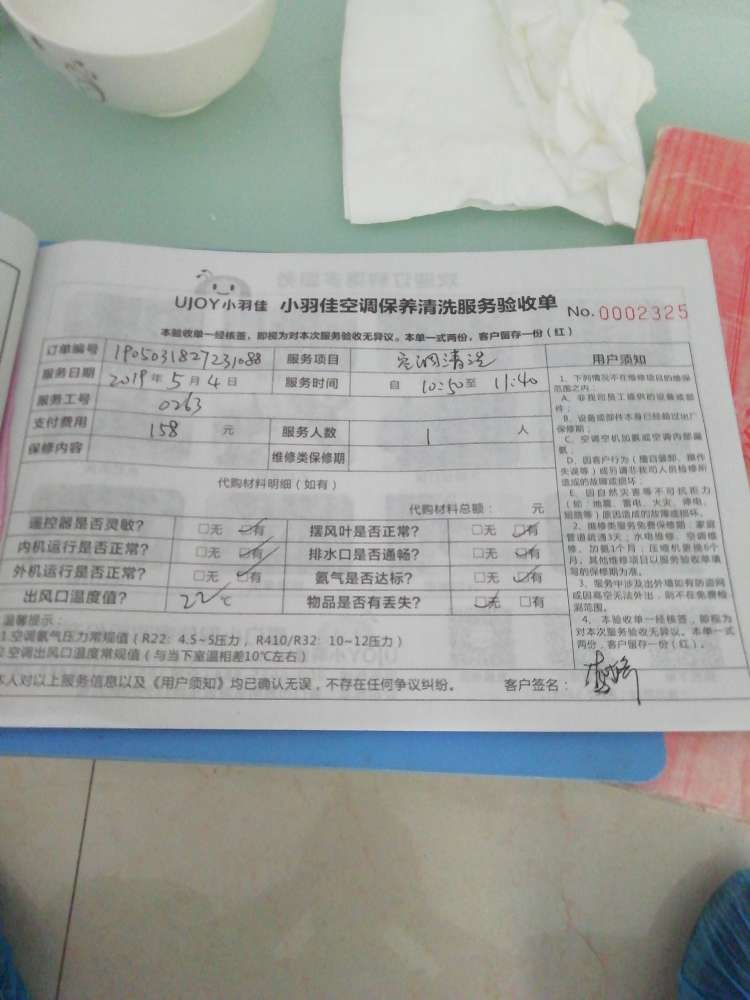 UJOY小羽佳 小羽佳空调保养清洗服务验收单 No.0002325
本验收单一经核签，即视为对本次服务验收无异议。本单一式两份，客户留存一份（红）
订单编号 1905031827231088 服务项目 空调清洗
服务日期 2019年5月4日 服务时间 自 10:50至 11:40
服务工号 0263
支付费用 158 元 服务人数 1 人
保修内容 维修类保修期
代购材料明细（如有）
代购材料总额： 元
遥控器是否灵敏？ □无 ☑有 摆风叶是否正常？ □无 ☑有
内机运行是否正常？ □无 ☑有 排水口是否通畅？ □无 ☑有
外机运行是否正常？ □无 ☑有 氨气是否达标？ □无 ☑有
出风口温度值？ 22℃ 物品是否有丢失？ ☑无 □有
温馨提示：
1.空调氨气压力常规值（R22：4.5~5压力，R410/R32：10~12压力）
2.空调出风口温度常规值（与当下室温相差10℃左右）
本人对以上服务信息以及《用户须知》均已确认无误，不存在任何争议纠纷。 客户签名：
用户须知
1、下列情况不在维修项目的维保
范围之内：
A、非我司员工提供的设备或部
件；
B、设备或部件本身已经超过出厂
保修期；
C、空调空机加氨或空调内部漏
氨；
D、因客户行为（擅自装卸、操作
失误等）或别请非我司人员检修所
造成的故障或损坏；
E、因自然灾害等不可抗拒力
（如：地震、雷电、火灾、停电、
短路等）原因造成的故障或损坏。
2、维修类服务免费保修期：家庭
管道疏通3天；水电维修、空调维
修、加氨1个月；压缩机更换6个
月。其他维修项目以服务验收单填
写的保修期为准。
3、服务中涉及出外墙如有防盗网
或因高空无法外出，则不在免费检
测范围。
4、本验收单一经核签，即视为
对本次服务验收无异议。本单一式
两份，客户留存一份（红）。